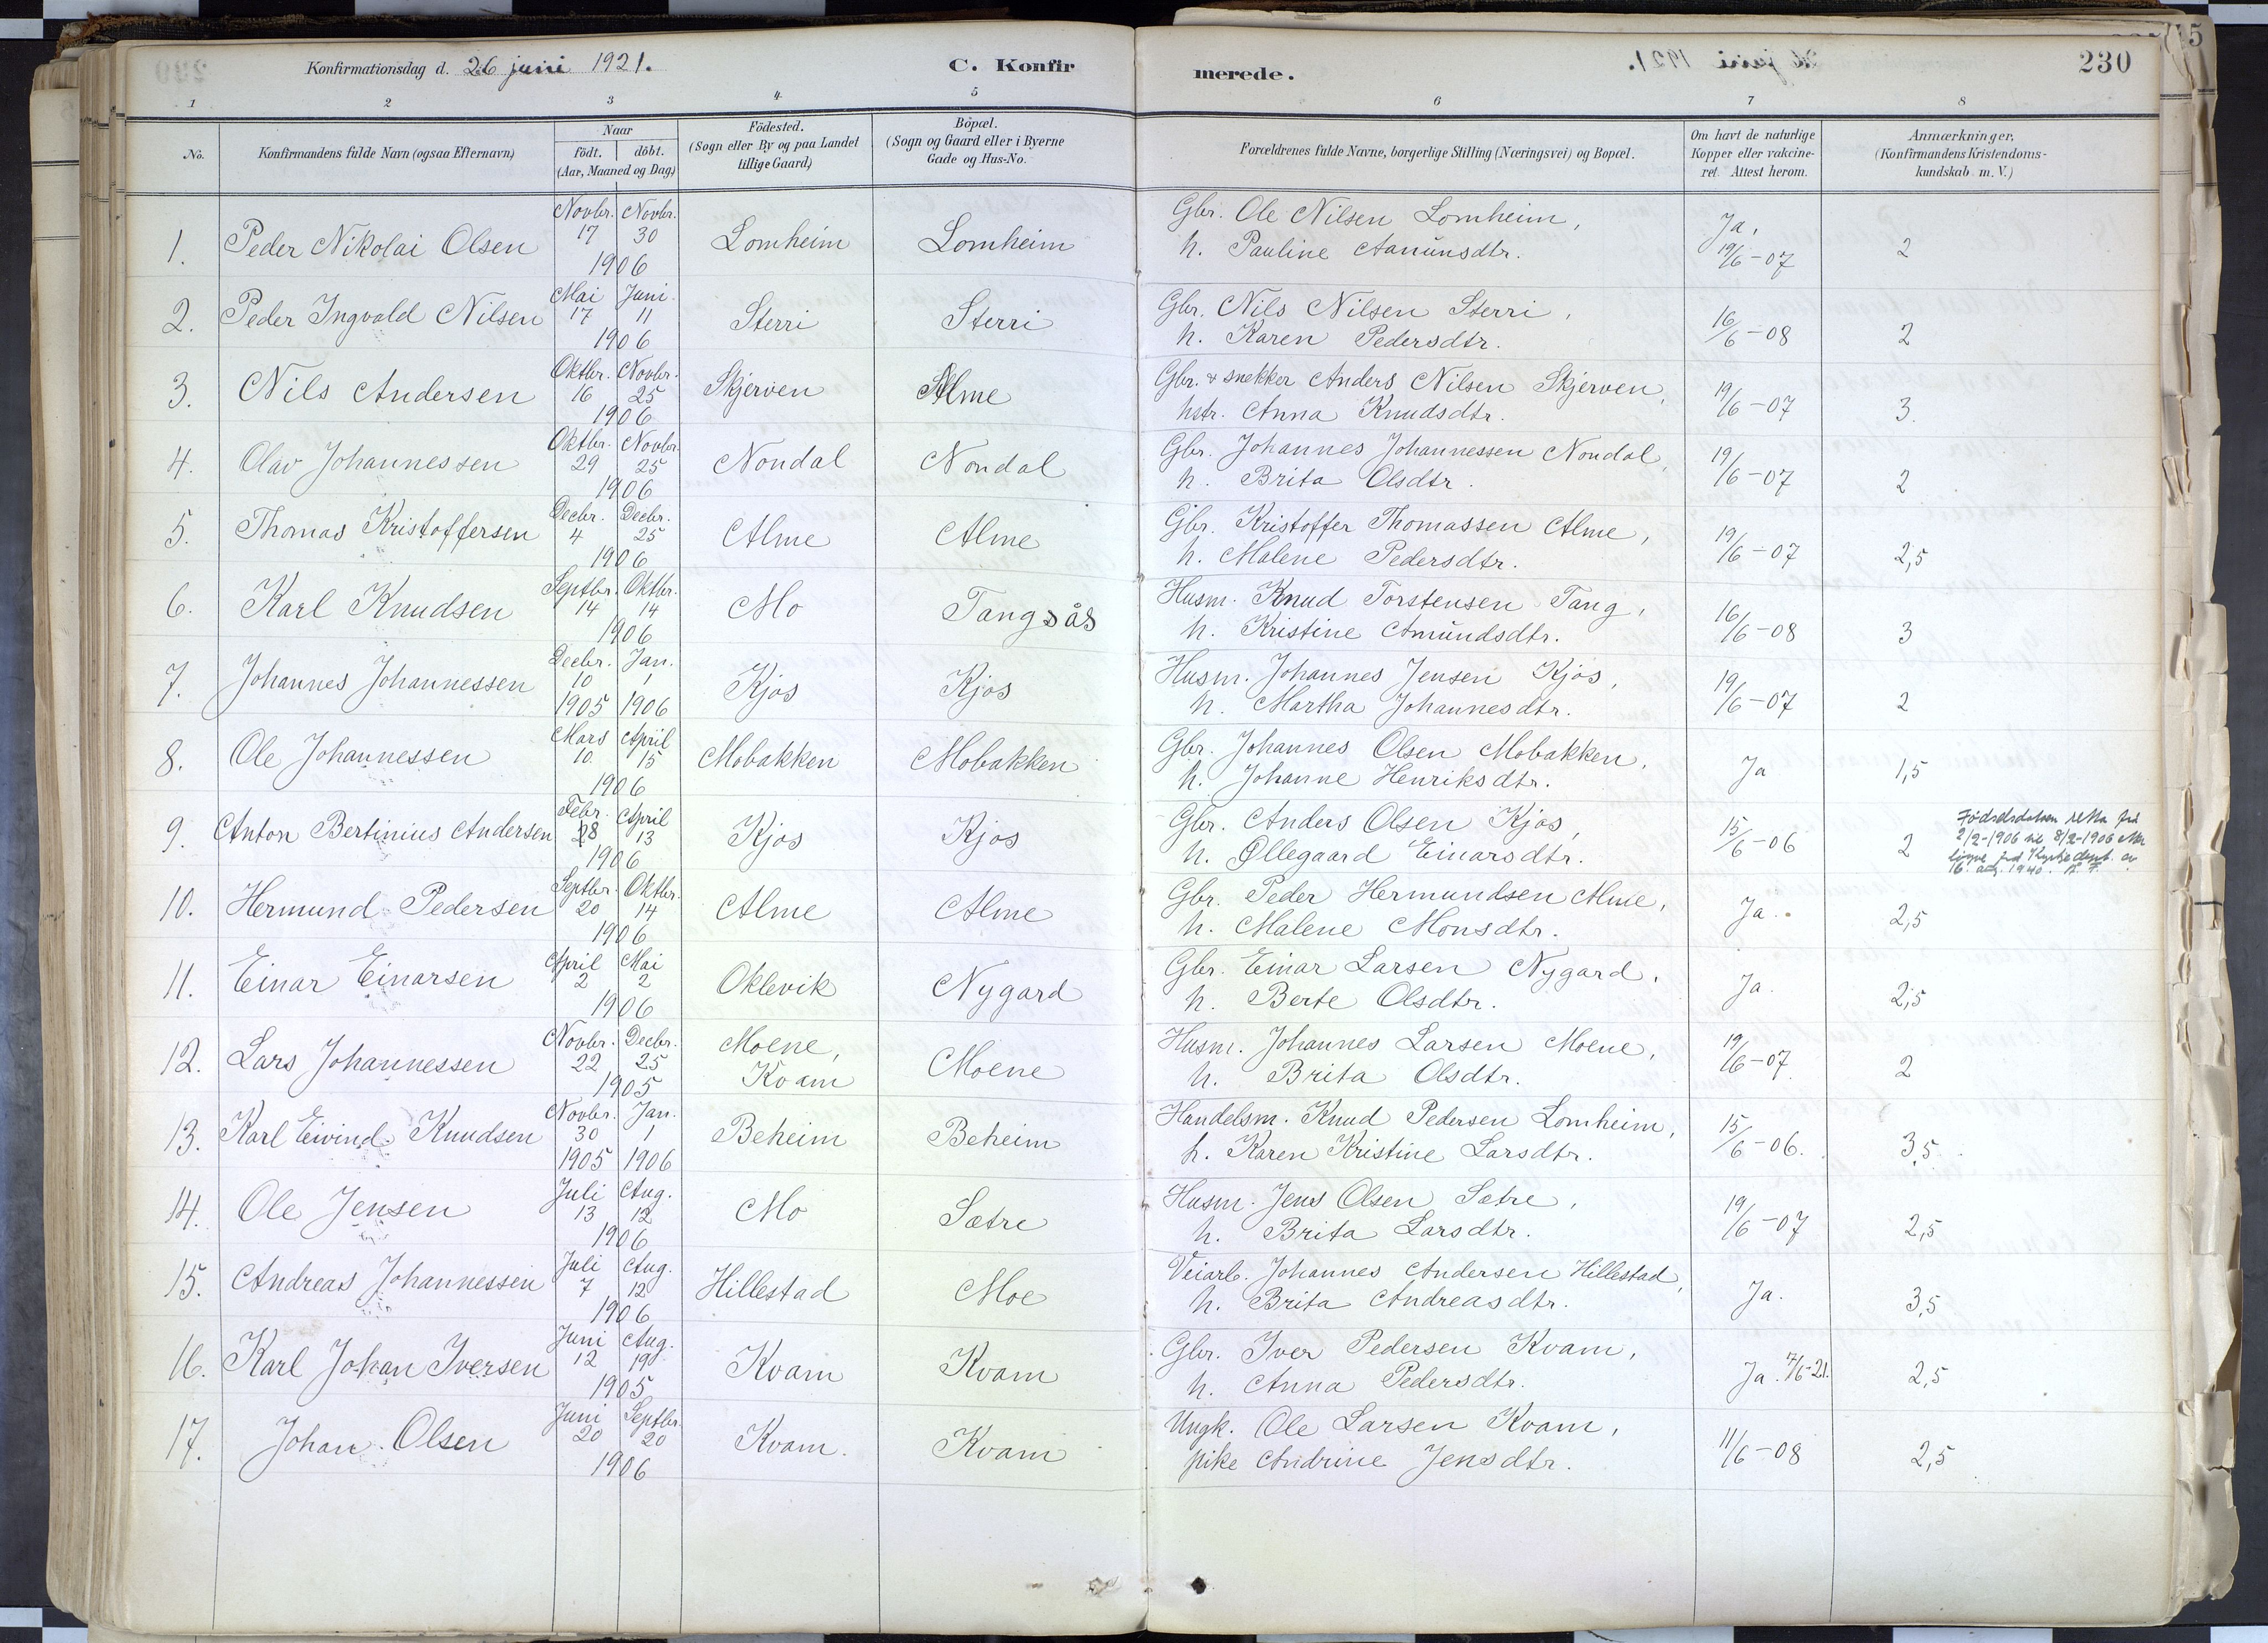 Konfirmationsdag d. 26 juni 1921. C. Konfirmerede. 230
1 2 3 4 5 6 7 8
No. | Konfirmandens fulde Navn (ogsaa Efternavn) | Naar födt. döbt. (Aar, Maaned og Dag) | Födested. (Sogn eller By og paa Landet tillige Gaard) | Böpæl. (Sogn og Gaard eller i Byerne Gade og Hus-No. | Forældrenes fulde Navne, borgerlige Stilling (Næringsvei) og Bopæl. | Om havt de naturlige Kopper eller vakcineret. Attest herom. | Anmærkninger, (Konfirmandens Kristendomskundskab m. V.)
1. Peder Nikolai Olsen | Novbr. 17 | Novbr. 30 | 1906 | Lomheim | Lomheim | Gbr. Ole Nilsen Lomheim, h. Pauline Aanunsdtr. | Ja, 19/6-07 | 2
2. Peder Ingvald Nilsen | Mai 17 | Juni 11 | 1906 | Sterri | Sterri | Gbr. Nils Nilsen Sterri, h. Karen Pedersdtr. | 16/6-08 | 2
3. Nils Andersen | Oktbr. 16 | Novbr. 25 | 1906 | Skjerven | Alme | Gbr. & snekker Anders Nilsen Skjerven, hstr. Anna Knudsdtr. | 19/6-07 | 3
4. Olav Johannessen | Oktbr. 29 | Novbr. 25 | 1906 | Nondal | Nondal | Gbr. Johannes Johannessen Nondal, h. Brita Olsdtr. | 19/6-07 | 2
5. Thomas Kristoffersen | Decbr. 4 | Decbr. 25 | 1906 | Alme | Alme | Gbr. Kristoffer Thomassen Alme, h. Malene Pedersdtr. | 19/6-07 | 2,5
6. Karl Knudsen | Septbr. 14 | Oktbr. 14 | 1906 | Mo | Tangsås | Husm. Knud Torstensen Tang, h. Kristine Amundsdtr. | 16/6-08 | 3
7. Johannes Johannessen | Decbr. 10 1905 | Jan. 1 1906 | Kjos | Kjos | Husm. Johannes Jensen Kjos, h. Martha Johannesdtr. | 19/6-07 | 2
8. Ole Johannessen | Mars 10. | April 15 | 1906 | Mobakken | Mobakken | Gbr. Johannes Olsen Mobakken, h. Johanne Henriksdtr. | Ja | 1,5
9. Anton Bertinius Andersen | Febr. 8 | April 13 | 1906 | Kjos | Kjos | Gbr. Anders Olsen Kjos, h. Øllegaard Einarsdtr. | 15/6-06 | 2 | Fødselsdatoen retta frå 2/2-1906 til 8/2-1906 etter løyve frå Kyrkjedept. av 16. aug. 1940.
10. Hermund Pedersen | Septbr. 20 | Oktbr. 14 | 1906 | Alme | Alme | Gbr. Peder Hermundsen Alme, h. Malene Monsdtr. | Ja. | 2,5
11. Einar Einarsen | April 2 | Mai 2 | 1906 | Oklevik | Nygard | Gbr. Einar Larsen Nygard, h. Berte Olsdtr. | Ja. | 2,5
12. Lars Johannessen | Novbr. 22 | Decbr. 25 | 1905 | Moene, Kvam | Moene | Husm. Johannes Larsen Moene, h. Brita Olsdtr. | 19/6-07 | 2
13. Karl Eivind Knudsen | Novbr. 30 1905 | Jan. 1 1906 | Beheim | Beheim | Handelsm. Knud Pedersen Lomheim, h. Karen Kristine Larsdtr. | 15/6-06. | 3,5
14. Ole Jensen | Juli 13 | Aug. 12 | 1906 | Mo | Sætre | Husm. Jens Olsen Sætre, h. Brita Larsdtr. | 19/6-07 | 2,5
15. Andreas Johannessen | Juli 7 | Aug. 12 | 1906 | Hillestad | Moe | Veiarb. Johannes Andersen Hillestad, h. Brita Andreasdtr. | Ja. | 3,5
16. Karl Johan Iversen | Juni 12 | Aug. 19 | 1905 | Kvam | Kvam | Gbr. Iver Pedersen Kvam, h. Anna Pedersdtr. | Ja. 7/6-21. | 2,5
17. Johan Olsen | Juni 20 | Septbr. 20 | 1906 | Kvam. | Kvam | Ungk. Ole Larsen Kvam, pike Andrine Jensdtr. | 11/6-08 | 2,5